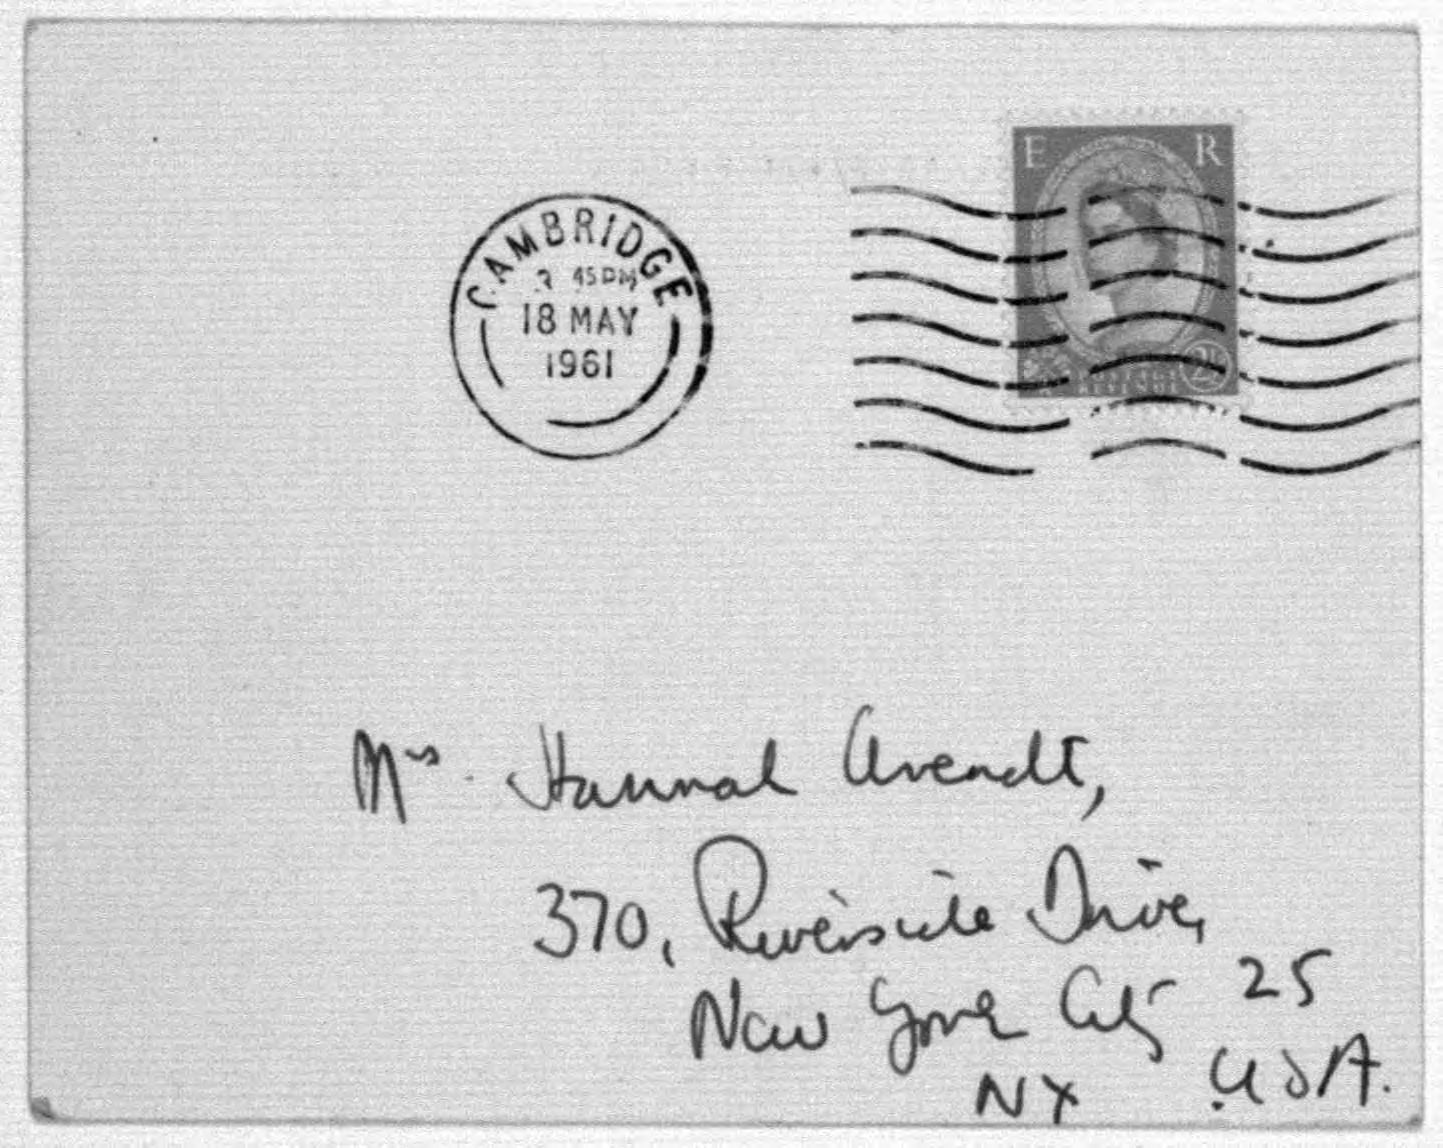 E R
CAMBRIDGE
3 45 PM
18 MAY
1961
2½
Mrs. Hannah Arendt,
370, Riverside Drive,
New York City 25
NY U.S.A.